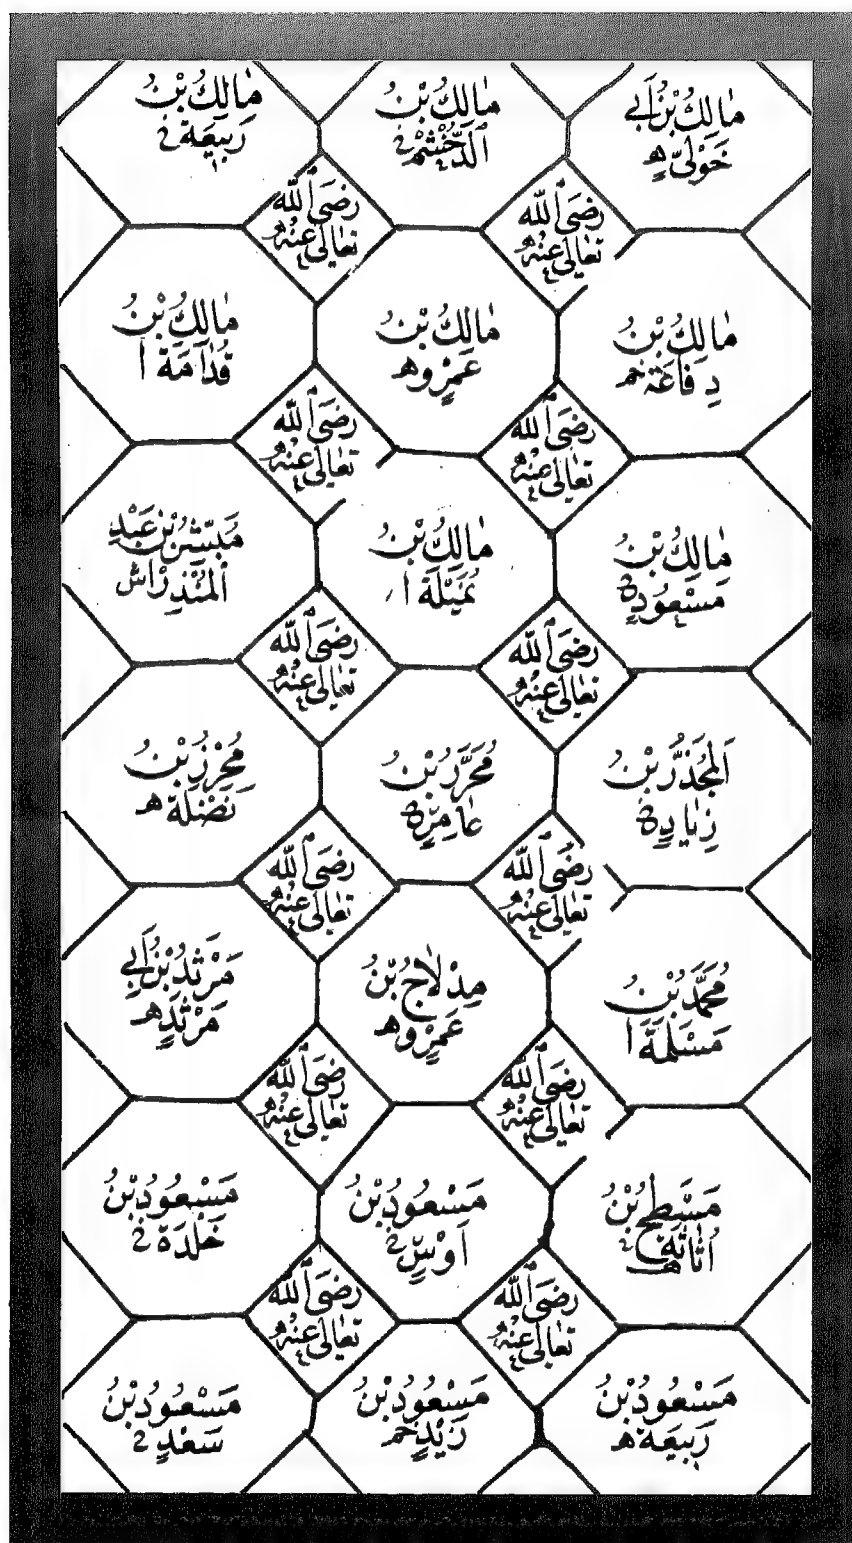 مَالِكُ بْنُ أَبِي
خَوْلِيّ هـ
مَالِكُ بْنُ
الدُّخْشُمْ خ
مَالِكُ بْنُ
رَبِيعَة خ
رَضِيَ اللّٰه
تَعَالٰى عَنْهُ
رَضِيَ اللّٰه
تَعَالٰى عَنْهُ
مَالِكُ بْنُ
رِفَاعَة خـ
مَالِكُ بْنُ
عَمْرٍو هـ
مَالِكُ بْنُ
قُدَامَة ا
رَضِيَ اللّٰه
تَعَالٰى عَنْهُ
رَضِيَ اللّٰه
تَعَالٰى عَنْهُ
مَالِكُ بْنُ
مَسْعُودٍ
مَالِكُ بْنُ
نُمَيْلَة ا
مُبَشِّرُ بْنُ عَبْدِ
الْمُنْذِرِ
رَضِيَ اللّٰه
تَعَالٰى عَنْهُ
رَضِيَ اللّٰه
تَعَالٰى عَنْهُ
الْمُجَذَّرُ بْنُ
زِيَادٍ
مُحَرَّرُ بْنُ
عَامِرٍ
مُحْرِزُ بْنُ
نَضْلَة هـ
رَضِيَ اللّٰه
تَعَالٰى عَنْهُ
رَضِيَ اللّٰه
تَعَالٰى عَنْهُ
مُحَمَّدُ بْنُ
مَسْلَمَة ا
مِدْلَاجُ بْنُ
عَمْرٍو هـ
مَرْثَدُ بْنُ أَبِي
مَرْثَدٍ هـ
رَضِيَ اللّٰه
تَعَالٰى عَنْهُ
رَضِيَ اللّٰه
تَعَالٰى عَنْهُ
مِسْطَحُ بْنُ
أُثَاثَة هـ
مَسْعُودُ بْنُ
أَوْسٍ خ
مَسْعُودُ بْنُ
خَلْدَة خ
رَضِيَ اللّٰه
تَعَالٰى عَنْهُ
رَضِيَ اللّٰه
تَعَالٰى عَنْهُ
مَسْعُودُ بْنُ
رَبِيعَة هـ
مَسْعُودُ بْنُ
زَيْدٍ خـ
مَسْعُودُ بْنُ
سَعْدٍ خ